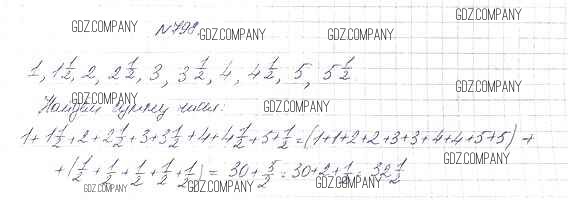 GDZ.COMPANY GDZ.COMPANY
№799. GDZ.COMPANY GDZ.COMPANY
1, 1 1/2, 2, 2 1/2, 3, 3 1/2, 4, 4 1/2, 5, 5 1/2.
GDZ.COMPANY GDZ.COMPANY
Найдём сумму чисел: GDZ.COMPANY
1+1 1/2+2+2 1/2+3+3 1/2+4+4 1/2+5+1/2=(1+1+2+2+3+3+4+4+5+5)+
GDZ.COMPANY
+(1/2+1/2+1/2+1/2+1/2)= 30+5/2=30+2+1/2=32 1/2
GDZ.COMPANY GDZ.COMPANY GDZ.COMPANY